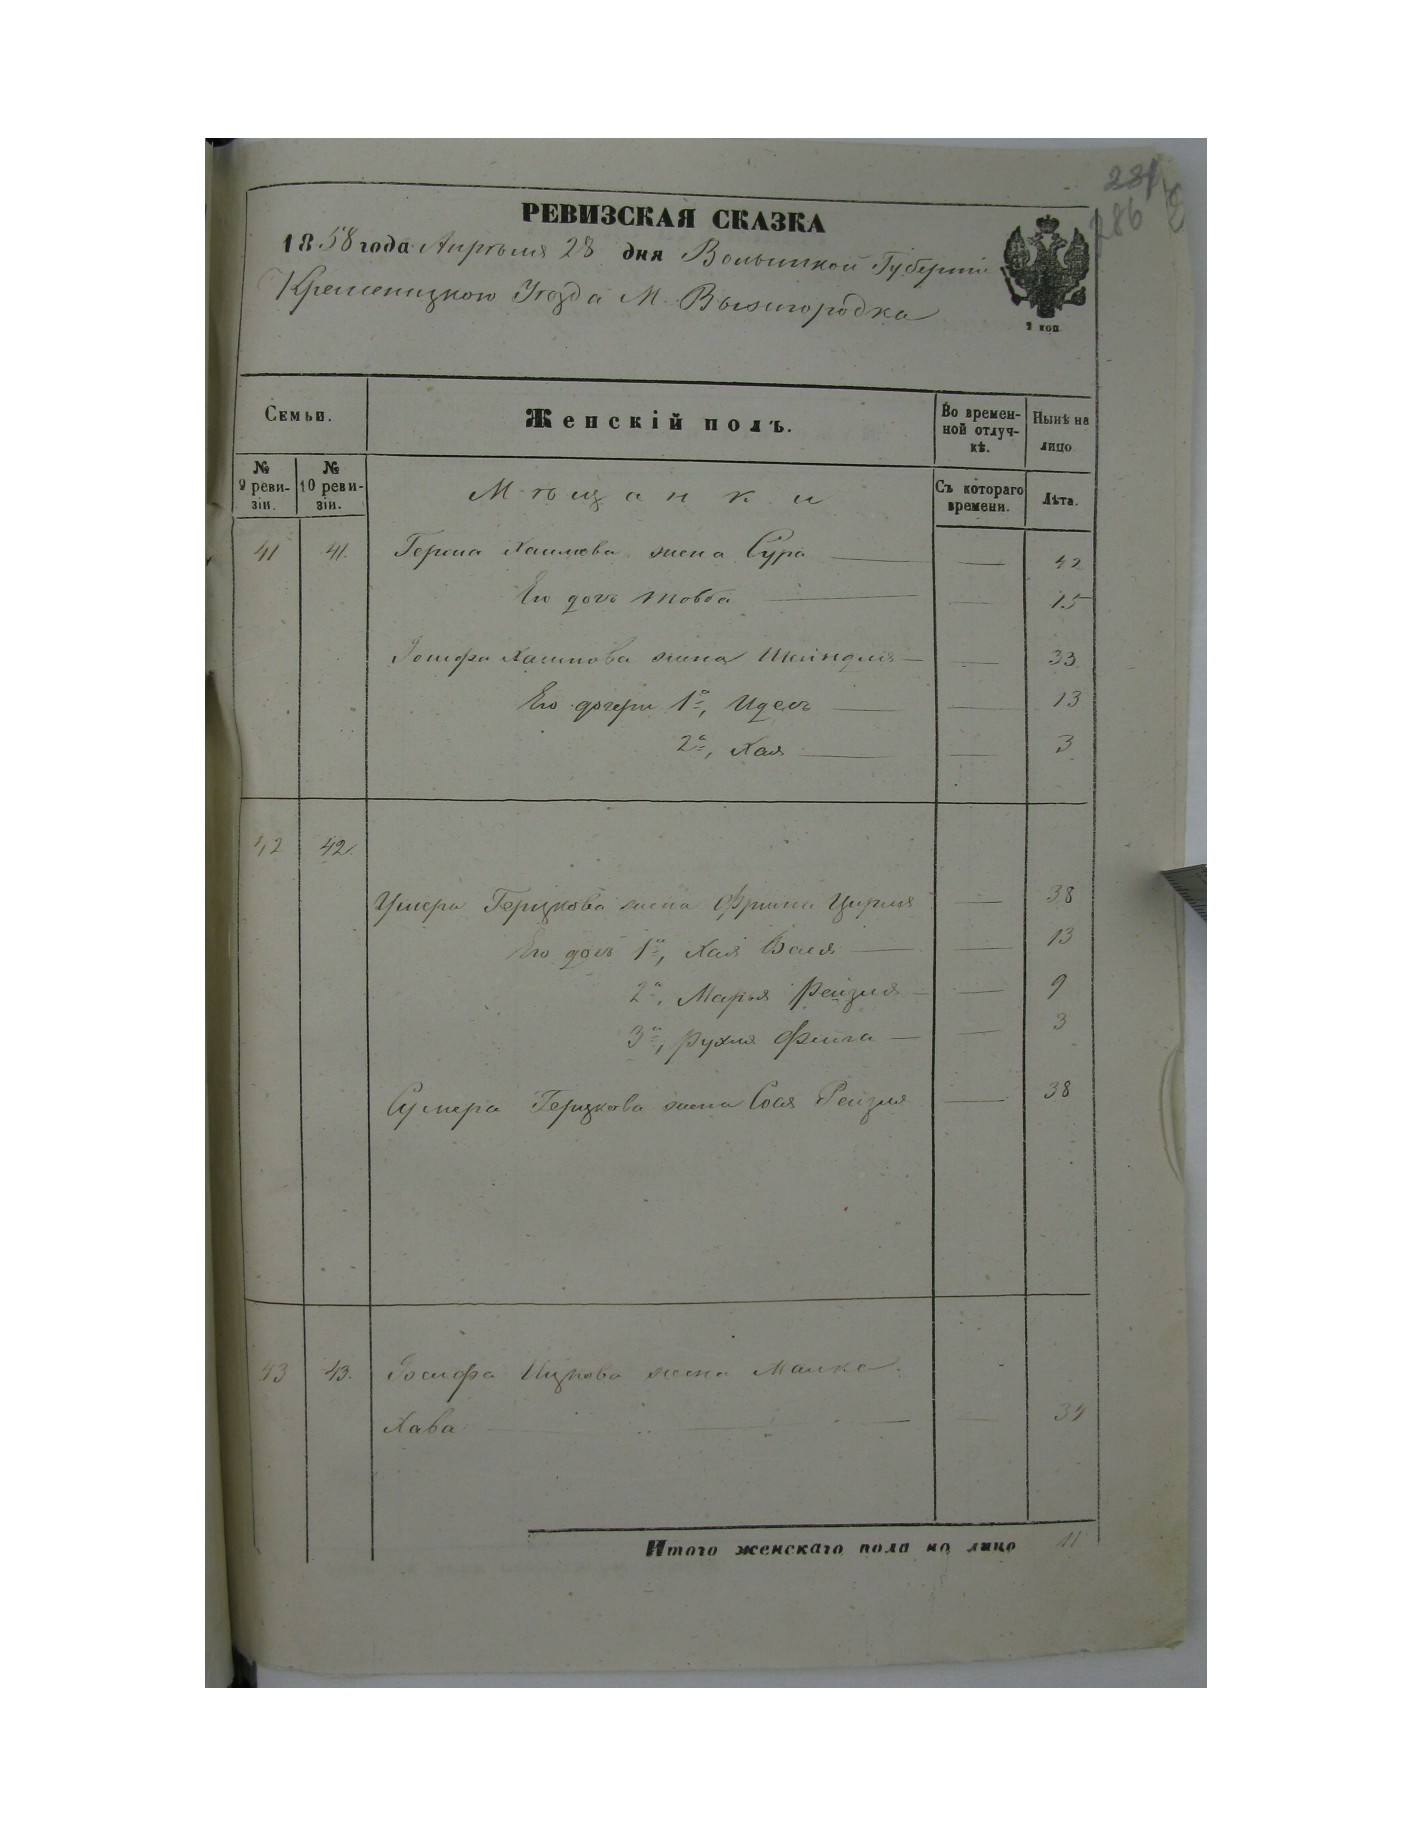 281
286
РЕВИЗСКАЯ СКАЗКА
1858 года Апрѣля 28 дня Волынской Губерніи
Кременецкого Уѣзда М. Вышгородка
2 коп.
Семьи.
Женскій полъ.
Во времен-
ной отлуч-
кѣ.
Нынѣ на
лицо
№
9 реви-
зіи.
№
10 реви-
зіи.
Мѣщанки
Съ котораго
времени.
Лѣта.
41 41. Хаимова жена Сура — — 42
Его дочь Товба — — 15
Іосифа Хаимова жена Шейндля — — 33
Его дочери 1я, Идесь — — 13
2я, Хая — — 3
42 42.
Ушера Герцкова жена Фрима Цирля — 38
Его дочь 1я, Хая Бася — — 13
2я, Марья Рейзля — — 9
3я, Рухля Фейга — — 3
Сумера Герцкова жена Сося Рейзля — 38
43 43. Іосифа Ицкова жена Малка
Хава — — 34
Итого женскаго пола на лицо 11